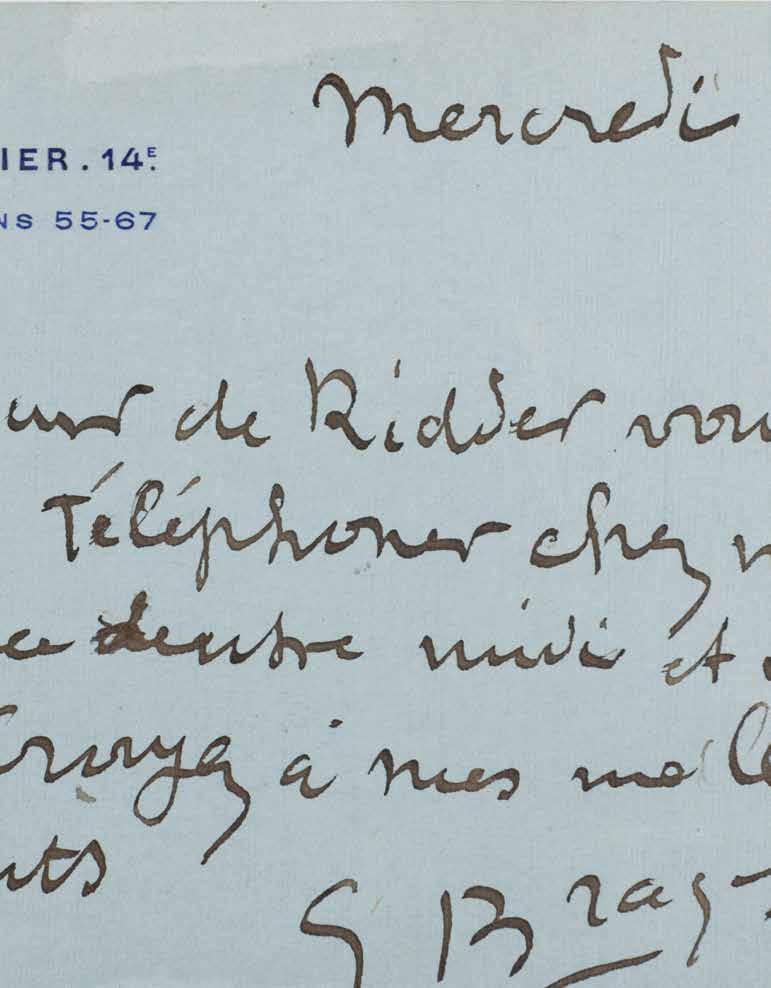 Mercredi
IER. 14E.
NS 55-67
eur de Ridder vou
Téléphoner chez
ce dentre midi et
Croyez à mes meille
nts
G Braq